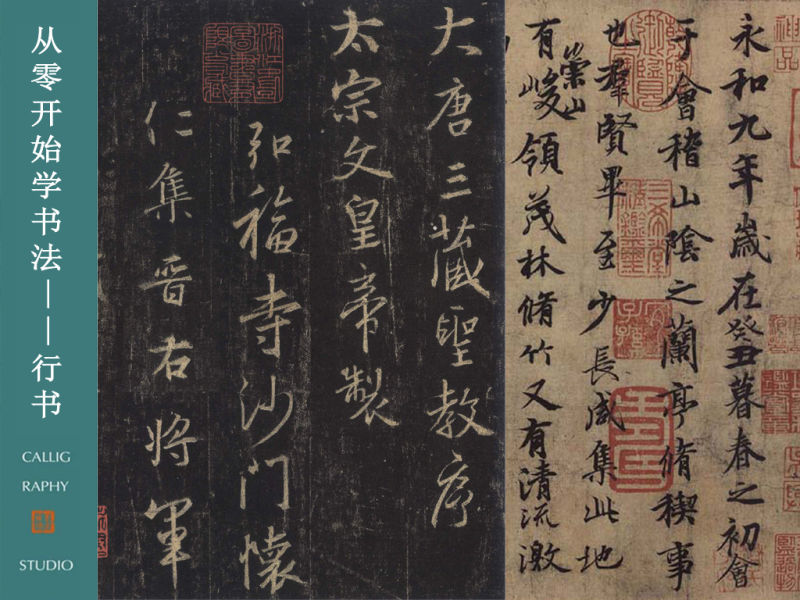 从零开始学书法——行书
CALLIG
RAPHY
STUDIO
大唐三藏聖教序
太宗文皇帝製
弘福寺沙門懷
仁集晋右将軍
永和九年歲在癸丑暮春之初會
于會稽山陰之蘭亭脩稧事
也羣賢畢至少長咸集此地
有崇山峻領茂林脩竹又有清流激